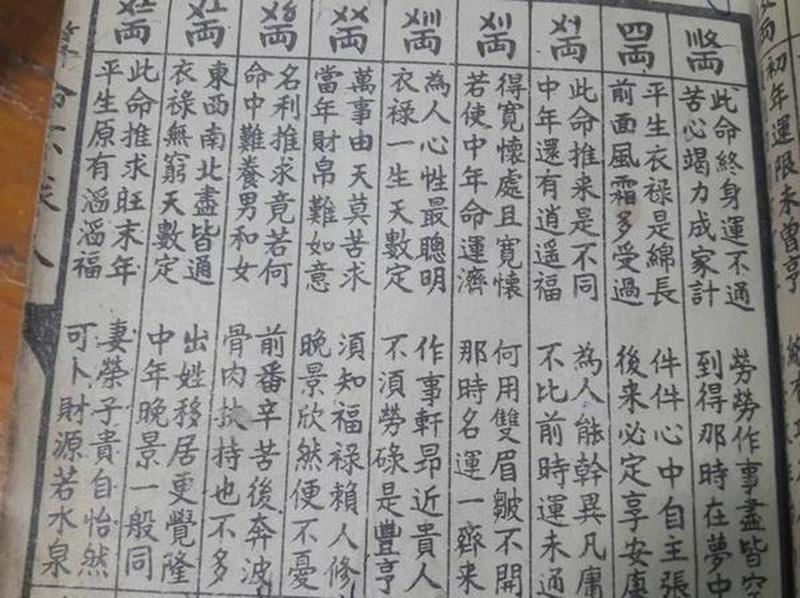 初年運限未曾亨
〣〩両
此命終身運不通
勞勞作事盡皆空
苦心竭力成家計
到得那時在夢中
四両
平生衣祿是綿長
件件心中自主張
前面風霜多受過
後来必定享安康
〤〡両
此命推来是不同
為人能幹異凡庸
中年還有逍遥福
不比前時運未通
〤〢両
得寛懷處且寛懷
何用雙眉皺不開
若使中年命運濟
那時名運一齊来
〤〣両
為人心性最聰明
作事軒昂近貴人
衣祿一生天數定
不須勞碌是豐亨
〤〤両
萬事由天莫苦求
須知福祿賴人修
當年財帛難如意
晚景欣然便不憂
〤〥両
名利推求竟若何
前番辛苦後奔波
命中難養男和女
骨肉扶持也不多
〤〦両
東西南北盡皆通
出姓移居更覺隆
衣祿無窮天數定
中年晚景一般同
〤〧両
此命推求旺末年
妻榮子貴自怡然
平生原有滔滔福
可卜財源若水泉